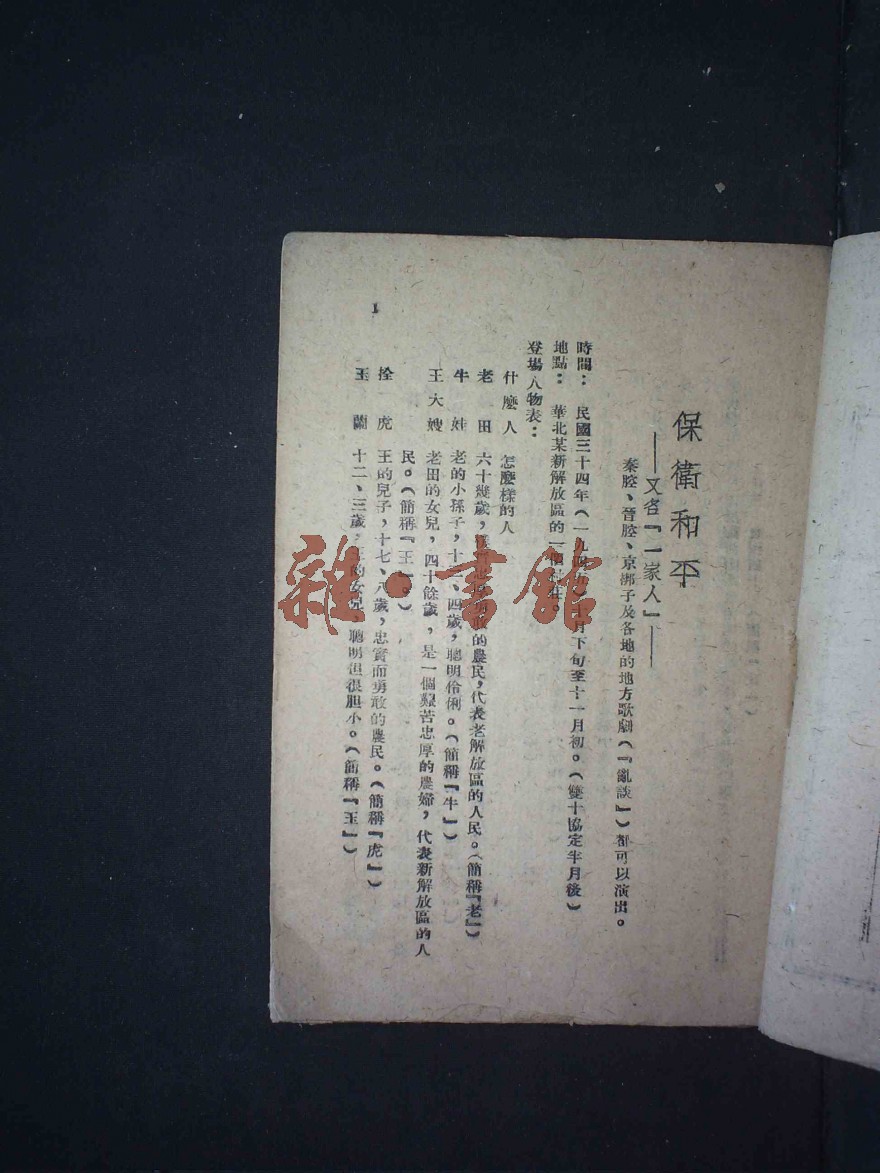 保衛和平
——又名『一家人』——
秦腔、晉腔、京梆子及各地的地方歌劇（『亂談』）都可以演出。
時間：民國三十四年（一九四五）十月下旬至十一月初。（雙十協定半月後）
地點：華北某新解放區的一個村莊。
登場人物表：
什麽人　怎麽樣的人
老田　六十幾歲，勇敢的農民，代表老解放區的人民。（簡稱『老』）
牛娃　老的小孫子，十三、四歲，聰明伶俐。（簡稱『牛』）
王大嫂　老田的女兒，四十餘歲，是一個艱苦忠厚的農婦，代表新解放區的人
民。（簡稱『王』。）
拴虎　王的兒子，十七、八歲，忠實而勇敢的農民。（簡稱『虎』）
玉蘭　十二、三歲，王的女兒，聰明但很胆小。（簡稱『玉』）
1
雜·書館